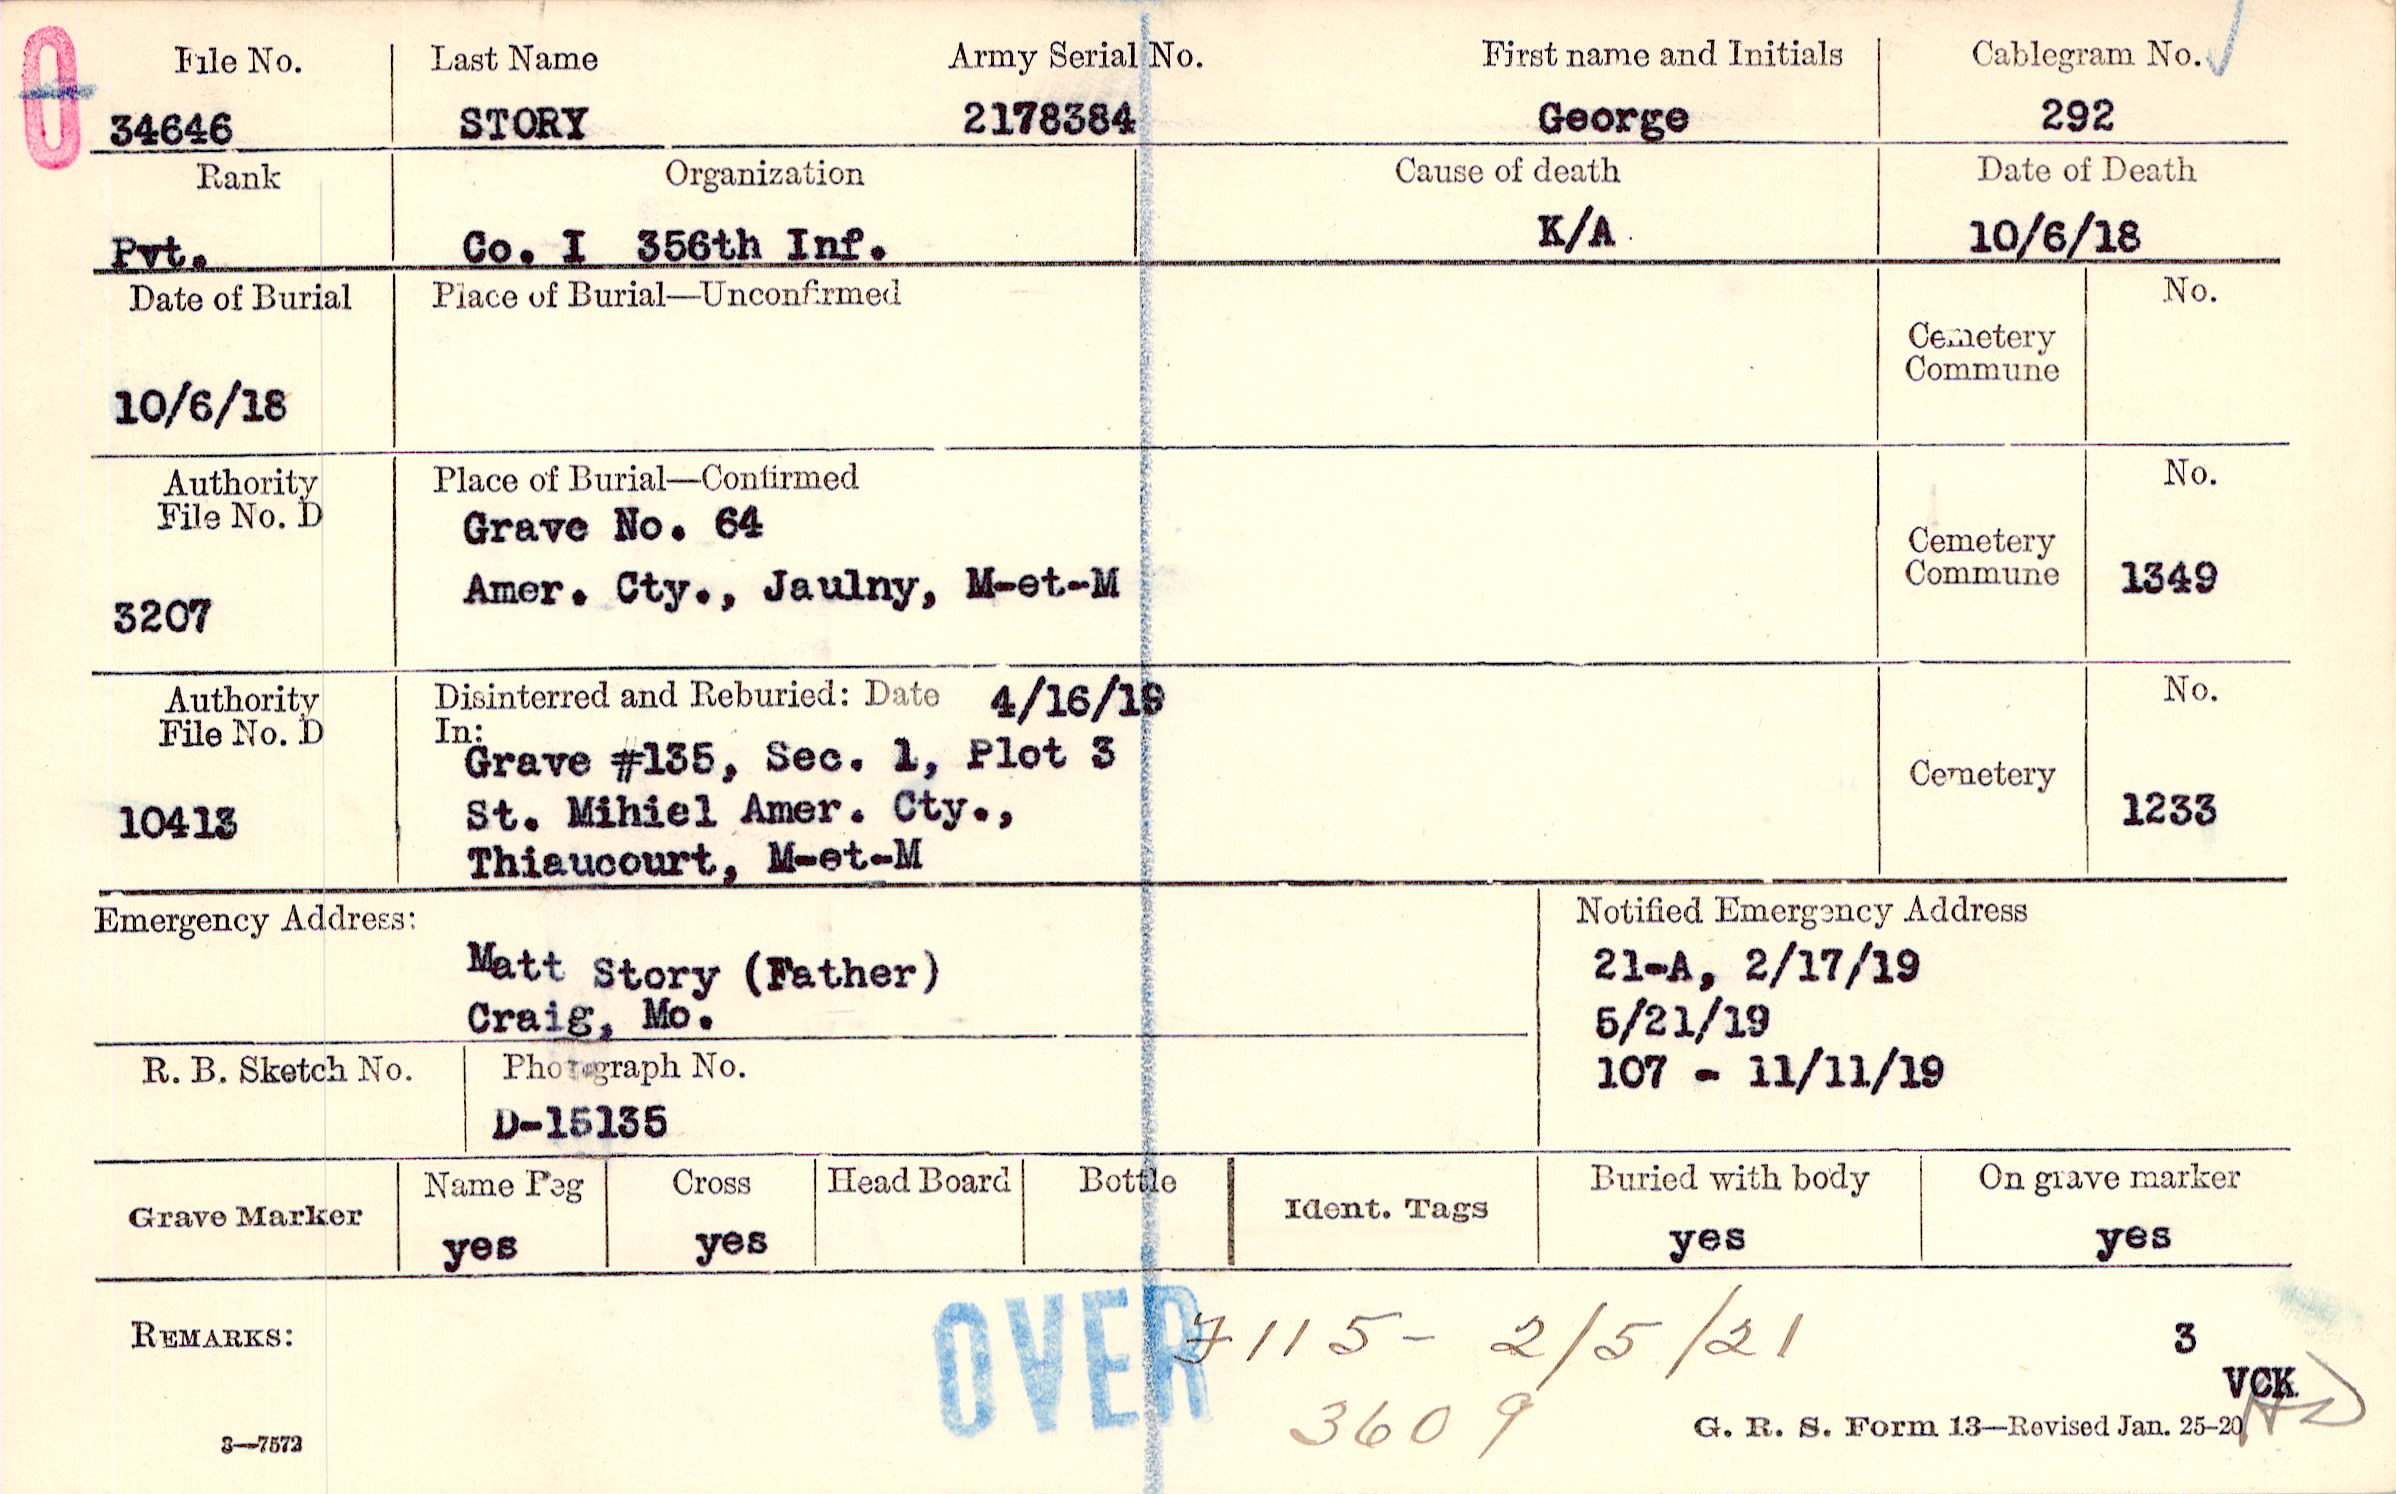 O
File No. Last Name Army Serial No. First name and Initials Cablegram No.
34646 STORY 2178384 George 292
Rank Organization Cause of death Date of Death
Pvt. Co. I 356th Inf. K/A 10/6/18
Date of Burial Place of Burial—Unconfirmed No.
Cemetery
Commune
10/6/18
Authority Place of Burial—Confirmed No.
File No. D
Grave No. 64
Cemetery
Amer. Cty., Jaulny, M-et-M Commune 1349
3207
Authority Disinterred and Reburied: Date 4/16/19 No.
File No. D In:
Grave #135, Sec. 1, Plot 3
Cemetery
10413 St. Mihiel Amer. Cty., 1233
Thiaucourt, M-et-M
Emergency Address: Notified Emergency Address
Matt Story (Father) 21-A, 2/17/19
Craig, Mo. 5/21/19
R. B. Sketch No. Photograph No. 107 - 11/11/19
D-15135
Name Peg Cross Head Board Bottle Buried with body On grave marker
Grave Marker Ident. Tags
yes yes yes yes
REMARKS: OVER 7115- 2/5/21 3
VCK
3609
3—7572 G. R. S. Form 13—Revised Jan. 25-20